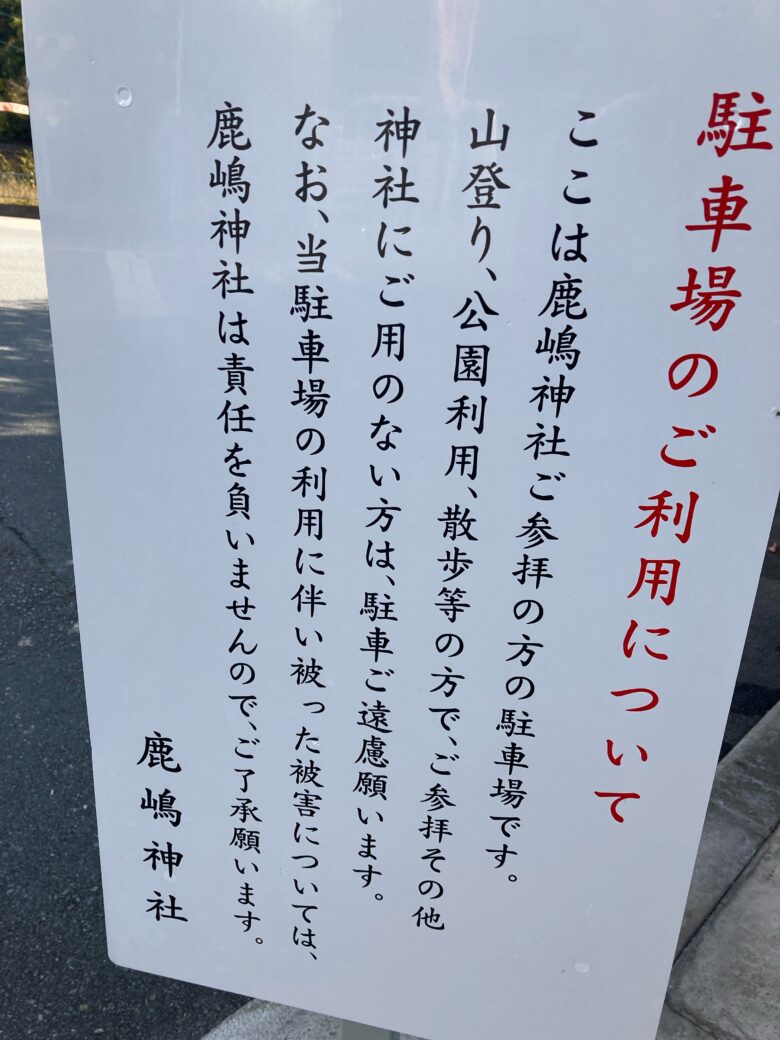 駐車場のご利用について
ここは鹿嶋神社ご参拝の方の駐車場です。
山登り、公園利用、散歩等の方で、ご参拝その他
神社にご用のない方は、駐車ご遠慮願います。
なお、当駐車場の利用に伴い被った被害については、
鹿嶋神社は責任を負いませんので、ご了承願います。
鹿嶋神社